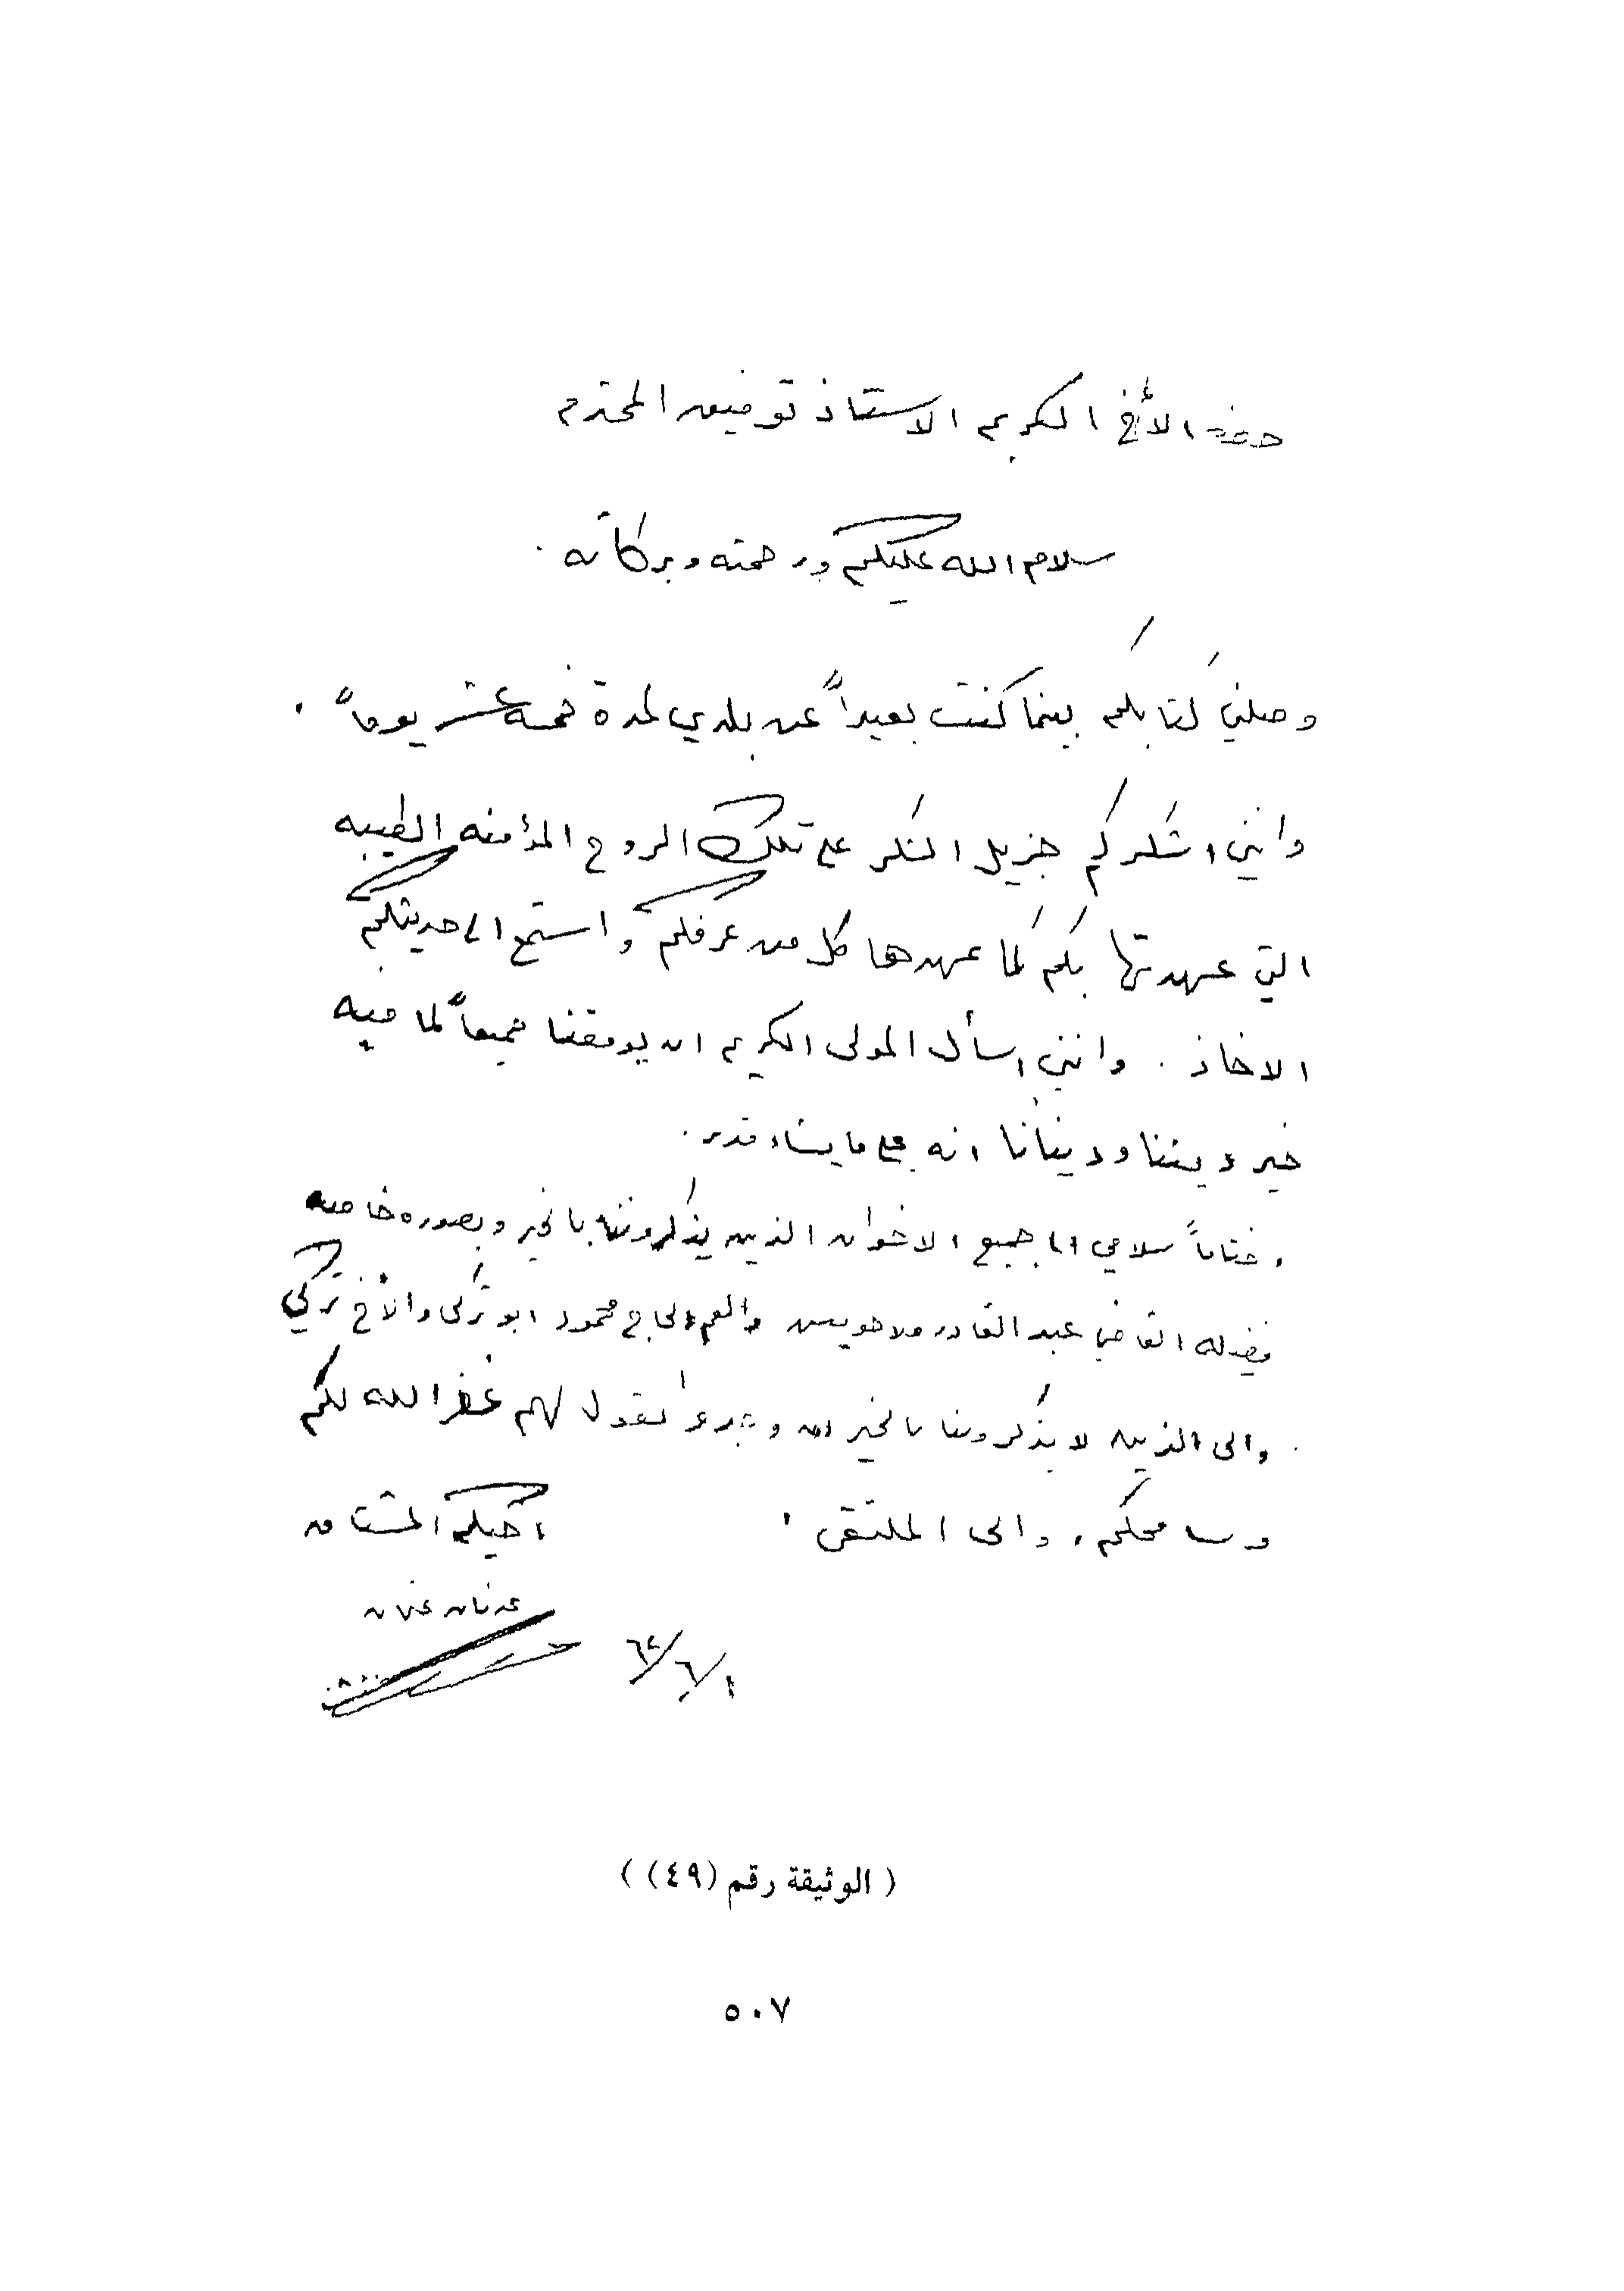 حضرة الأخ الكريم الاستاذ توفيق المحترم
سلام الله عليكم ورحمته وبركاته .
وصلني كتابكم بينما كنت بعيداً عن بلدي لمدة خمسة عشر يوماً .
وانني اشكركم جزيل الشكر على تلك الروح المؤمنه الطيبه
التي عهدتها بكم كما عهدها كل من عرفكم واستمع الى حديثكم
الاخاذ . وانني اسأل المولى الكريم ان يوفقنا جميعاً لما فيه
خير ديننا ودنيانا انه على ما يشاء قدير .
ختاماً سلامي الى جميع الاخوان الذين يذكروننا بالخير وبصوره خاصه
فضيلة القاضي عبد القادر والعم الحاج محمود ابو تركي والأخ تركي
والى الذين لا يذكروننا بالخير نقول لهم غفر الله لكم
وسامحكم ، والى الملتقى . اخيكم المشتاق
عدنان
١/٦/٦٤
( الوثيقة رقم (٤٩) )
٥٠٧